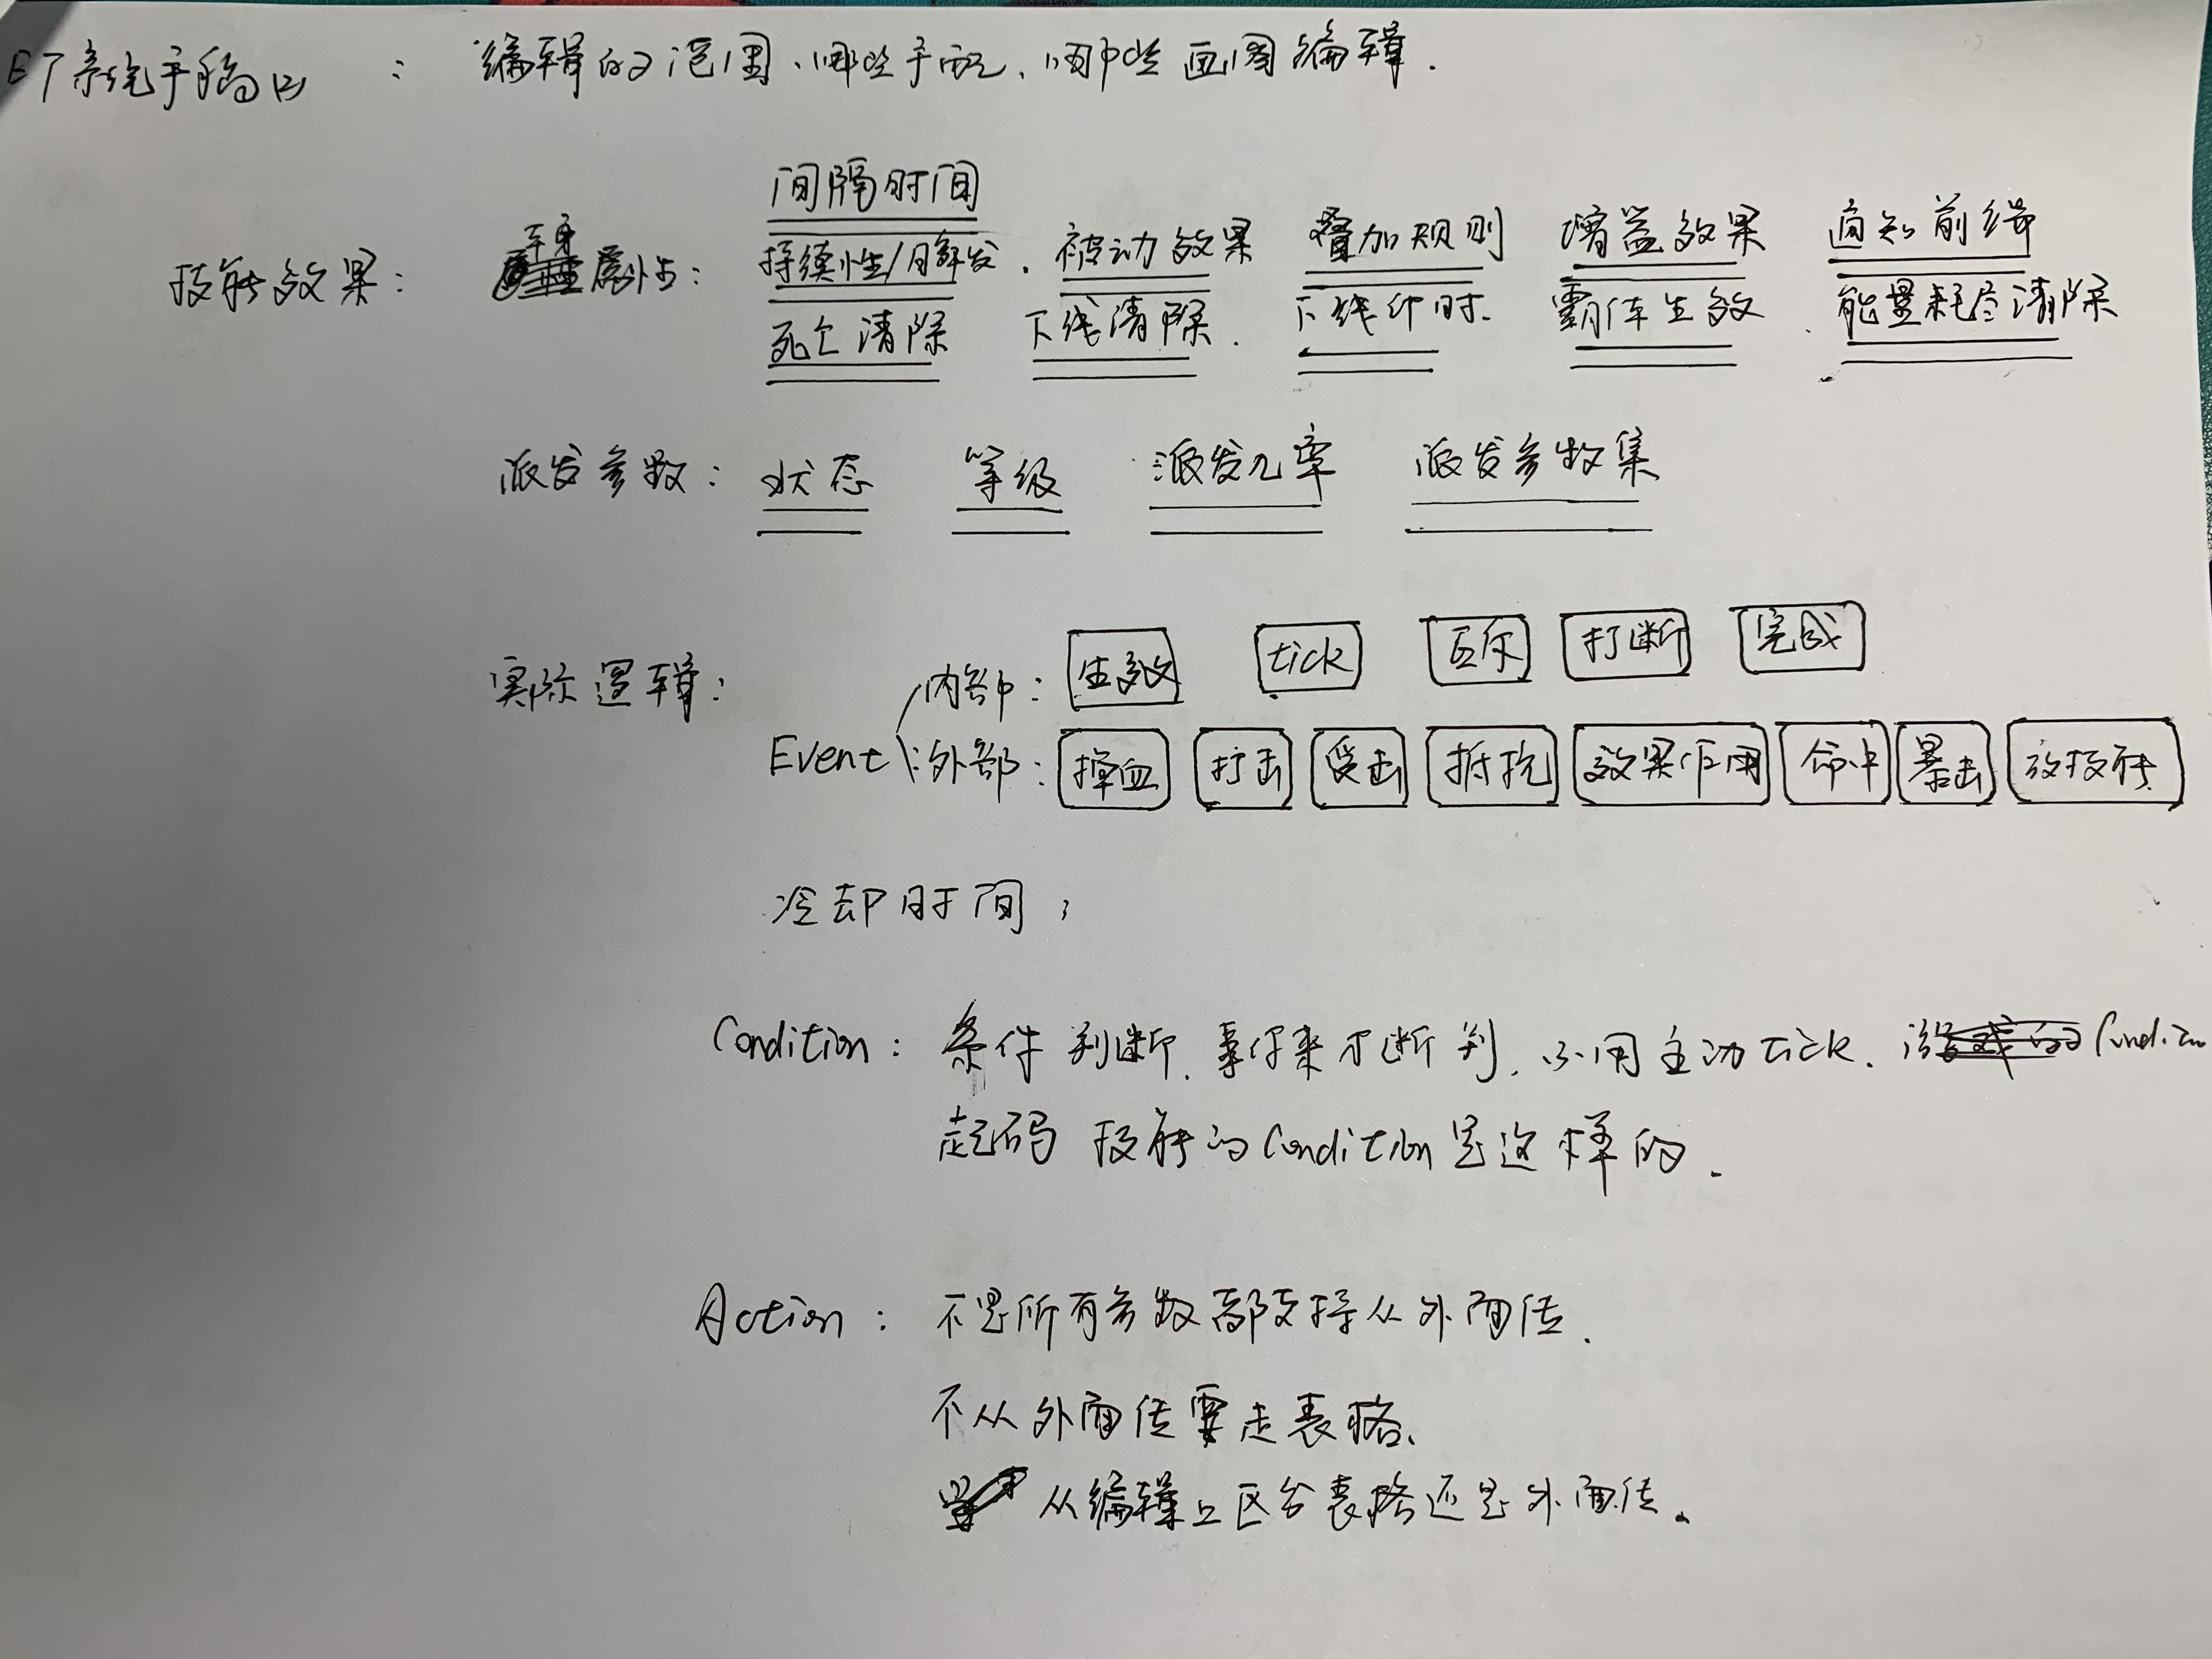 系统手稿 : 编辑的范围、哪些手配、哪些画图编辑.
间隔时间
技能效果: 本身属性: 持续性/触发. 被动效果 叠加规则 增益效果 通知前端
死亡清除 下线清除. 下线计时. 霸体生效. 能量耗尽清除
派发参数: 状态 等级 派发几率 派发参数集
实际逻辑: 内部: 生效 tick 打断 完成
Event 外部: 掉血 打击 受击 抵抗 效果作用 命中 暴击 放技能
冷却时间;
Condition: 条件判断. 事件来才断判. 不用主动tick.
起码 技能的Condition是这样的.
Action: 不是所有参数都支持从外面传.
不从外面传要走表格.
从编辑上区分表格还是外面传。